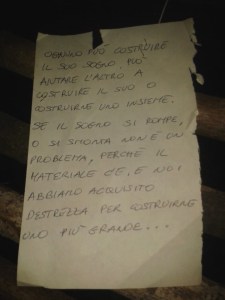 OGNUNO PUÒ COSTRUIRE
IL SUO SOGNO, PUÒ
AIUTARE L'ALTRO A
COSTRUIRE IL SUO O
COSTRUIRNE UNO INSIEME.
SE IL SOGNO SI ROMPE,
O SI SMONTA NON È UN
PROBLEMA, PERCHÈ IL
MATERIALE C'È, E NOI
ABBIAMO ACQUISITO
DESTREZZA PER COSTRUIRNE
UNO PIÙ GRANDE...